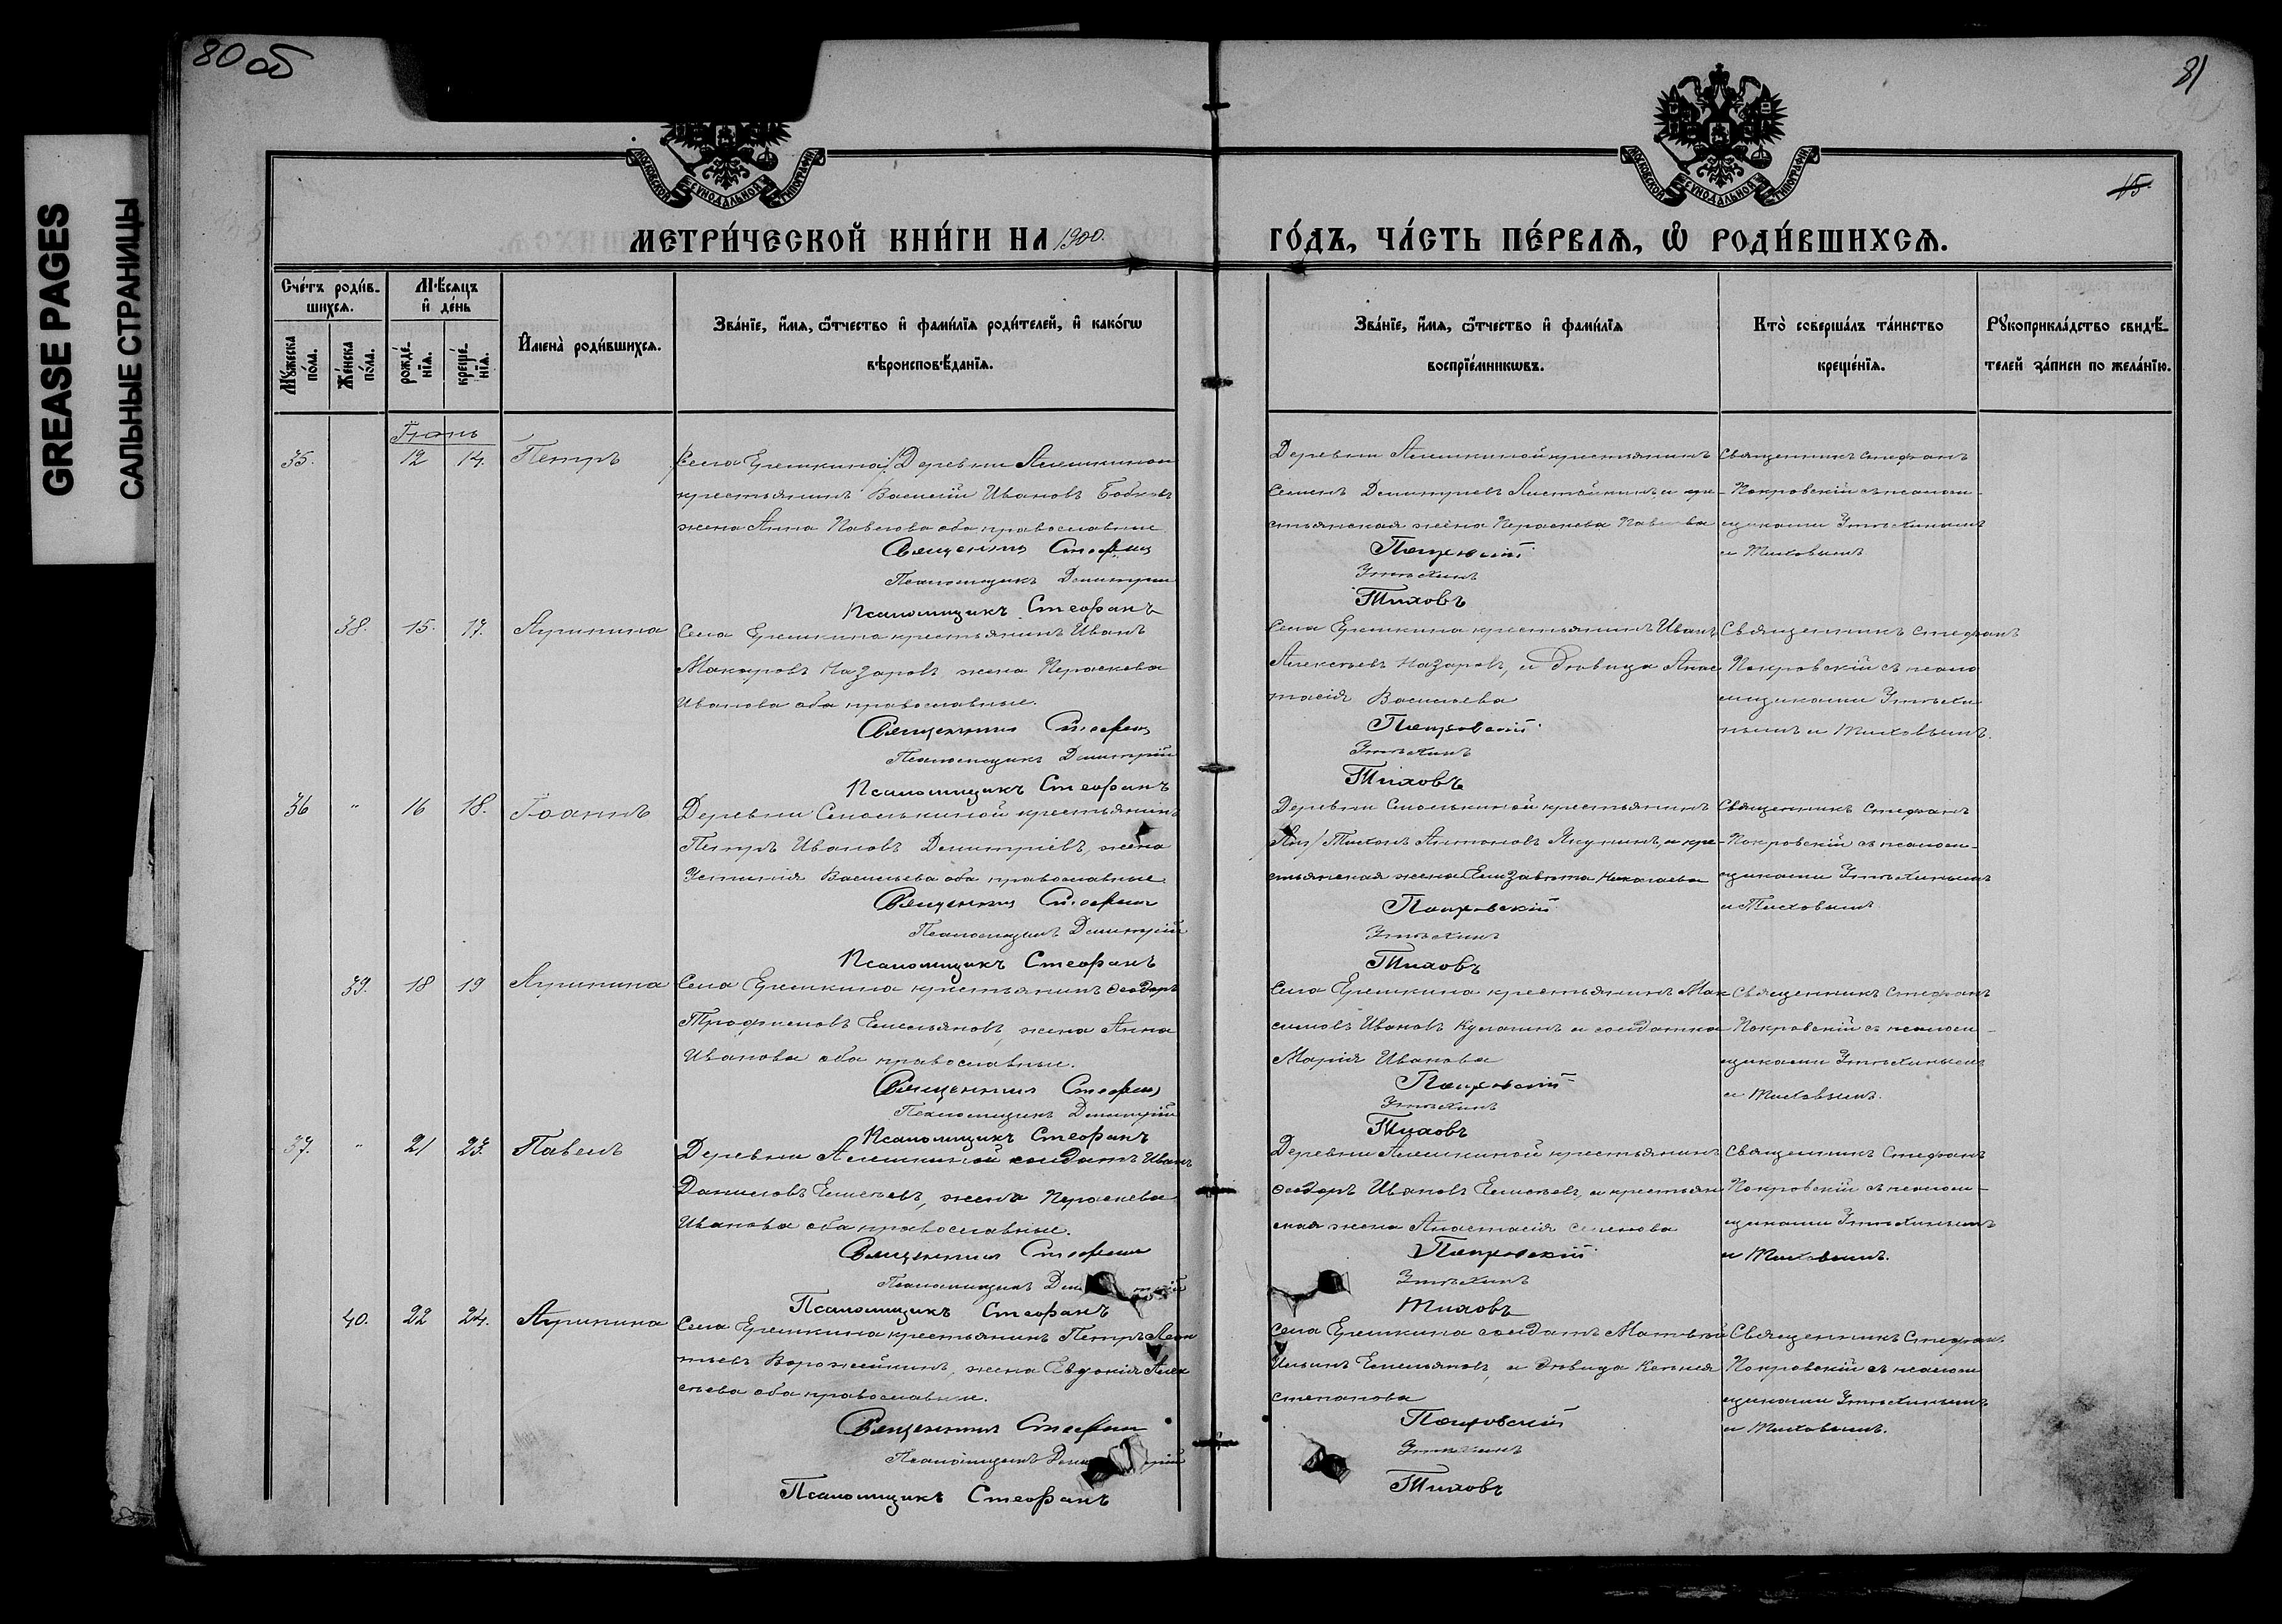 80 об
81
15
GREASE PAGES
САЛЬНЫЕ СТРАНИЦЫ
МОСКОВСКОЙ СѴНОДАЛЬНОЙ ТИПОГРАФІИ
МОСКОВСКОЙ СѴНОДАЛЬНОЙ ТИПОГРАФІИ
МЕТРИ́ЧЕСКОЙ КНИ́ГИ НА 1900.
ГО́ДЪ, ЧА́СТЬ ПЕ́РВАѦ, Ѡ҆ РОДИ́ВШИХСѦ.
Сче́тъ роди́в-
шихсѧ.
Мꙋжеска по́ла.
Же́нска по́ла.
Мѣ́сѧцъ
и҆ де́нь
рожде́нїѧ.
креще́нїѧ.
И҆мена̀ роди́вшихсѧ.
Зва́нїе, и҆́мѧ, ѻ҆́тчество и҆ фами́лїѧ роди́телей, и҆ како́гѡ
вѣроисповѣ́данїѧ.
Зва́нїе, и҆́мѧ, ѻ҆́тчество и҆ фами́лїѧ
воспрїе́мникѡвъ.
Кто̀ соверша́лъ та́инство
креще́нїѧ.
Рꙋкоприкла́дство свидѣ́-
телей за́писи по жела́нїю.
Іюнь
35. 12 14. Петръ
Села Еремкина/ Деревни Алешкиной
крестьянинъ Василій Ивановъ
жена Анна Павлова оба православные
Священникъ Стефанъ
Псаломщикъ Димитрій
Псаломщикъ Стефанъ
Деревни Алешкиной крестьянинъ
Семенъ Димитріевъ и кре-
стьянская жена Параскева Павлова
Покровскій
Утѣхинъ
Тиховъ
Священникъ Стефанъ
Покровскій съ псалом-
щиками Утѣхинымъ
и Тиховымъ
38. 15. 17. Агрипина
Села Еремкина крестьянинъ Иванъ
Макаровъ Назаровъ, жена Параскева
Иванова оба православные.
Священникъ Стефанъ
Псаломщикъ Димитрій
Псаломщикъ Стефанъ
Села Еремкина крестьянинъ Иванъ
Алексѣевъ Назаровъ, и дѣвица Анас
тасія Васильева
Покровскій
Утѣхинъ
Тиховъ
Священникъ Стефанъ
Покровскій съ псало
мщиками Утѣхи
нымъ и Тиховымъ.
36 " 16 18. Іоаннъ
Деревни Смолькиной крестьянинъ
Петръ Ивановъ Димитріевъ, жена
Устинія Васильева оба православные
Священникъ Стефанъ
Псаломщикъ Димитрій
Псаломщикъ Стефанъ
Деревни Смолькиной крестьянинъ
Тихонъ Антоновъ Якунинъ, и кре-
стьянская жена Елизавета Николаева
Покровскій
Утѣхинъ
Тиховъ
Священникъ Стефанъ
Покровскій съ псалом-
щиками Утѣхинымъ
и Тиховымъ
39. 18 19 Агрипина
Села Еремкина крестьянинъ Ѳеодоръ
Трофимовъ Емельяновъ, жена Анна
Иванова оба православные.
Священникъ Стефанъ
Псаломщикъ Димитрій
Псаломщикъ Стефанъ
Села Еремкина крестьянинъ Мак
симовъ Ивановъ Кулагинъ и солдатка
Марія Иванова
Покровскій
Утѣхинъ
Тиховъ
Священникъ Стефанъ
Покровскій съ псалом-
щиками Утѣхинымъ
и Тиховымъ.
37. " 21 23. Павелъ
Деревни Алешкиной солдатъ Иванъ
Даниловъ Елисѣевъ, жена Параскева
Иванова оба православные.
Священникъ Стефанъ
Псаломщикъ Димитрій
Псаломщикъ Стефанъ
Деревни Алешкиной крестьянинъ
Ѳеодоръ Ивановъ Елисѣевъ, и крестьян
ская жена Анастасія Семенова
Покровскій
Утѣхинъ
Тиховъ
Священникъ Стефанъ
Покровскій съ псалом-
щиками Утѣхинымъ
и Тиховымъ.
40. 22 24. Агрипина
Села Еремкина крестьянинъ Петръ Леон
тьевъ Ворожейкинъ, жена Евдокія Алек
сѣева оба православные.
Священникъ Стефанъ
Псаломщикъ Димитрій
Псаломщикъ Стефанъ
Села Еремкина солдатъ Матвѣй
Ильинъ Емельяновъ, и дѣвица Ксенія
Степанова
Покровскій
Утѣхинъ
Тиховъ
Священникъ Стефанъ
Покровскій съ псалом
щиками Утѣхинымъ
и Тиховымъ.